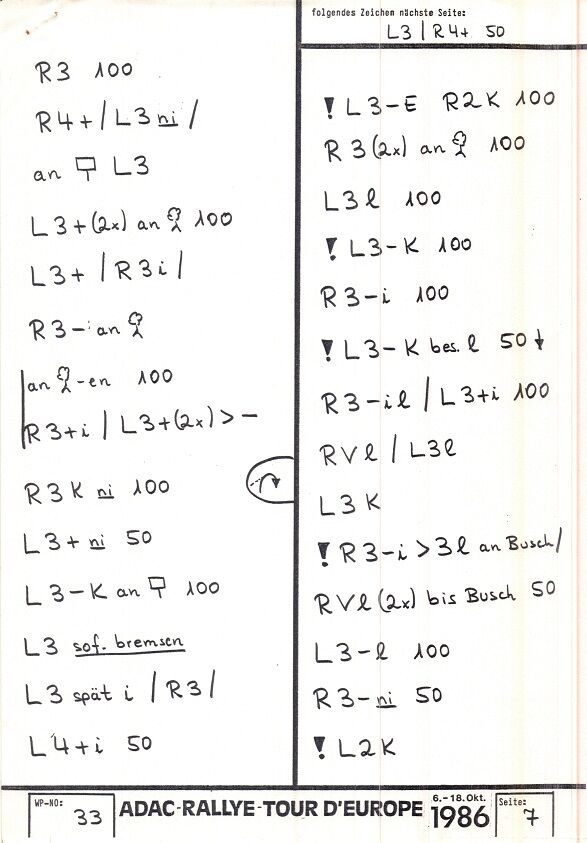 folgendes Zeichen nächste Seite:
L3 | R4+ 50
R3 100
R4+ / L3 ni /
an L3
L3+(2x) an 100
L3+ / R3i /
R3-i an
an -en 100
R3+i / L3+(2x) > -
R3 K ni 100
L3+ ni 50
L3-K an 100
L3 sof. bremsen
L3 spät i / R3 /
L4+i 50
! L3-E R2K 100
R3(2x) an 100
L3 l 100
! L3-K 100
R3-i 100
! L3-K bes. l 50 ↓
R3-il / L3+i 100
RVl / L3l
L3 K
! R3-i > 3l an Busch /
RVl (2x) bis Busch 50
L3-l 100
R3-ni 50
! L2K
WP-NO: 33
ADAC-RALLYE-TOUR D'EUROPE
6.-18.Okt. 1986
Seite: 7